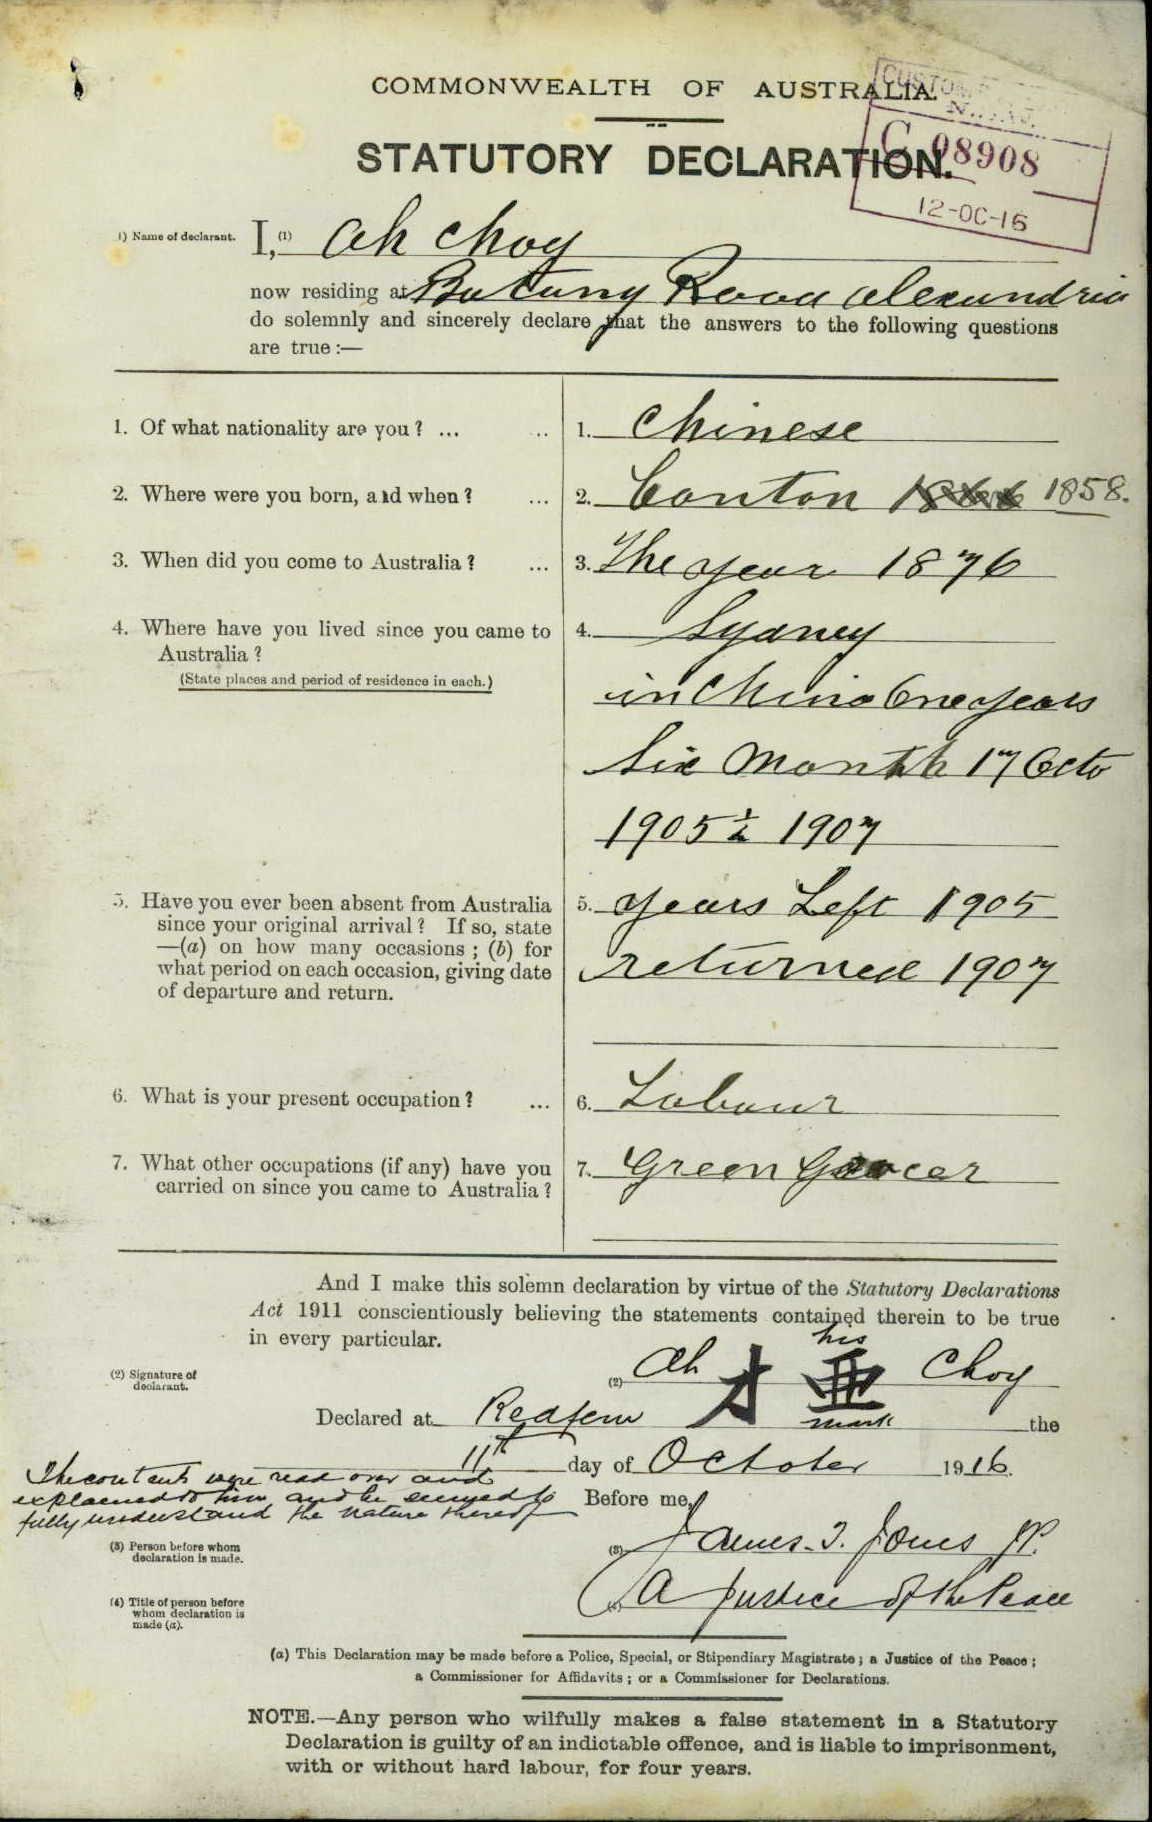 COMMONWEALTH OF AUSTRALIA.
STATUTORY DECLARATION.
CUSTOM
C 08908
12-OC-16
1) Name of declarant.
I, (1) Ah Choy
now residing at Botany Road Alexandria
do solemnly and sincerely declare that the answers to the following questions
are true:—
1. Of what nationality are you? ... ..
1. Chinese
2. Where were you born, and when? ...
2. Canton 1866 1858.
3. When did you come to Australia? ...
3. The year 1876
4. Where have you lived since you came to
Australia?
(State places and period of residence in each.)
4. Sydney
in China One years
Six Month 17 Octo
1905 ½ 1907
5. Have you ever been absent from Australia
since your original arrival? If so, state
—(a) on how many occasions; (b) for
what period on each occasion, giving date
of departure and return.
5. years Left 1905
returned 1907
6. What is your present occupation? ...
6. Labour
7. What other occupations (if any) have you
carried on since you came to Australia?
7. Green Grocer
And I make this solemn declaration by virtue of the Statutory Declarations
Act 1911 conscientiously believing the statements contained therein to be true
in every particular.
his
(2) Signature of
declarant.
(2) Ah 才 亜 Choy
mark
Declared at Redfern the
11th day of October 1916.
The contents were read over and
explained to him and he seemed to
fully understand the nature thereof
Before me,
(3) Person before whom
declaration is made.
(3) James. T. Jones JP.
(4) Title of person before
whom declaration is
made (a).
(4) A Justice of the Peace
(a) This Declaration may be made before a Police, Special, or Stipendiary Magistrate; a Justice of the Peace;
a Commissioner for Affidavits; or a Commissioner for Declarations.
NOTE.—Any person who wilfully makes a false statement in a Statutory
Declaration is guilty of an indictable offence, and is liable to imprisonment,
with or without hard labour, for four years.